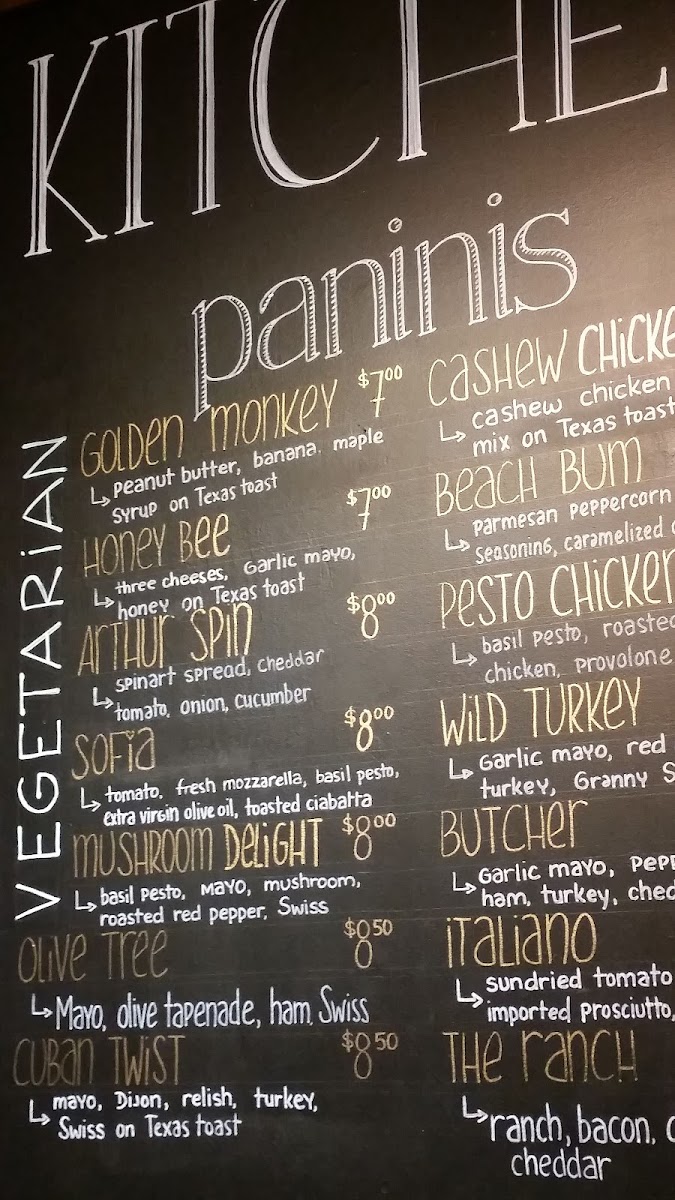 KITCHE
paninis
VEGETARIAN
GOLDEN MONKEY $7.00
↳ Peanut butter, banana, maple
syrup on Texas toast
HONEY BEE $7.00
↳ three cheeses, Garlic mayo,
honey on Texas toast
ARTHUR SPIN $8.00
↳ spinart spread, cheddar
tomato, onion, cucumber
SOFIA $8.00
↳ tomato, fresh mozzarella, basil pesto,
extra virgin olive oil, toasted ciabatta
MUSHROOM DELIGHT $8.00
↳ basil pesto, mayo, mushroom,
roasted red pepper, Swiss
OLIVE TREE $8.50
↳ Mayo, olive tapenade, ham, Swiss
CUBAN TWIST $8.50
↳ mayo, Dijon, relish, turkey,
Swiss on Texas toast
CASHEW CHICKE
↳ cashew chicken
mix on Texas toast
BEACH BUM
↳ Parmesan peppercorn
seasoning, caramelized
PESTO CHICKEN
↳ basil pesto, roasted
chicken, provolone
WILD TURKEY
↳ Garlic mayo, red
turkey, Granny S
BUTCHER
↳ Garlic mayo, pepp
ham, turkey, ched
ITALIANO
↳ sundried tomato
imported prosciutto,
THE RANCH
↳ ranch, bacon, c
cheddar